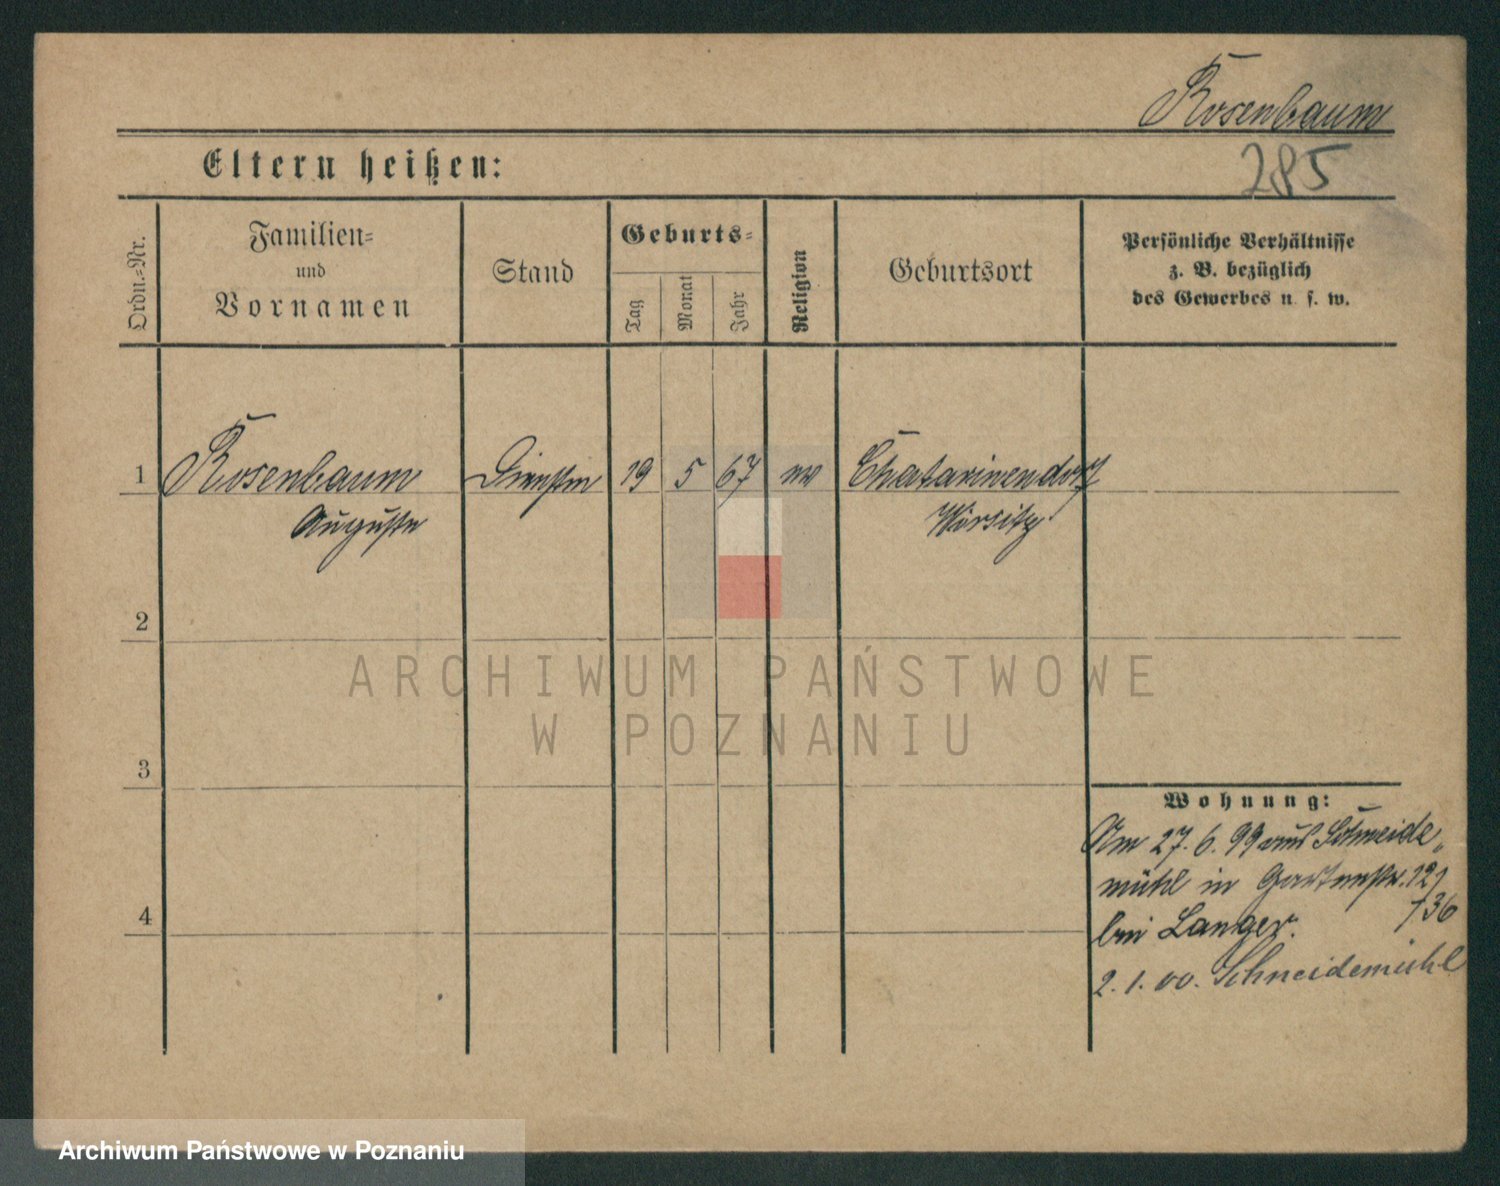 Rosenbaum
Eltern heißen:
285
Ordn.-Nr.
Familien-
und
Vornamen
Stand
Geburts-
Tag
Monat
Jahr
Religion
Geburtsort
Persönliche Verhältnisse
z. B. bezüglich
des Gewerbes u. s. w.
1 Rosenbaum Dienstm 19 5 67 ev Chatarinendorf
Auguste Wirsitz
2
3
4
Wohnung:
Am 27. 6. 99 aus Schneide-
mühl in Gartenstr. 12,
bei Langer. 736
2. 1. 00. Schneidemühl
ARCHIWUM PAŃSTWOWE
W POZNANIU
Archiwum Państwowe w Poznaniu